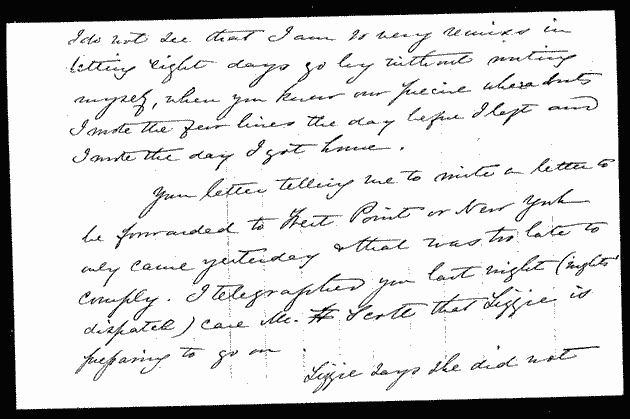 I do not see that I am so very remiss in
letting eight days go by without writing
myself, when you knew our precise whereabouts
I wrote the few lines the day before I left and
I wrote the day I got home.
Your letter telling me to write a letter to
be forwarded to West Point or New York
only came yesterday & that was too late to
comply. I telegraphed you last night (nights
dispatch) care Mr. Scott that Lizzie is
preparing to go on
Lizzie says she did not